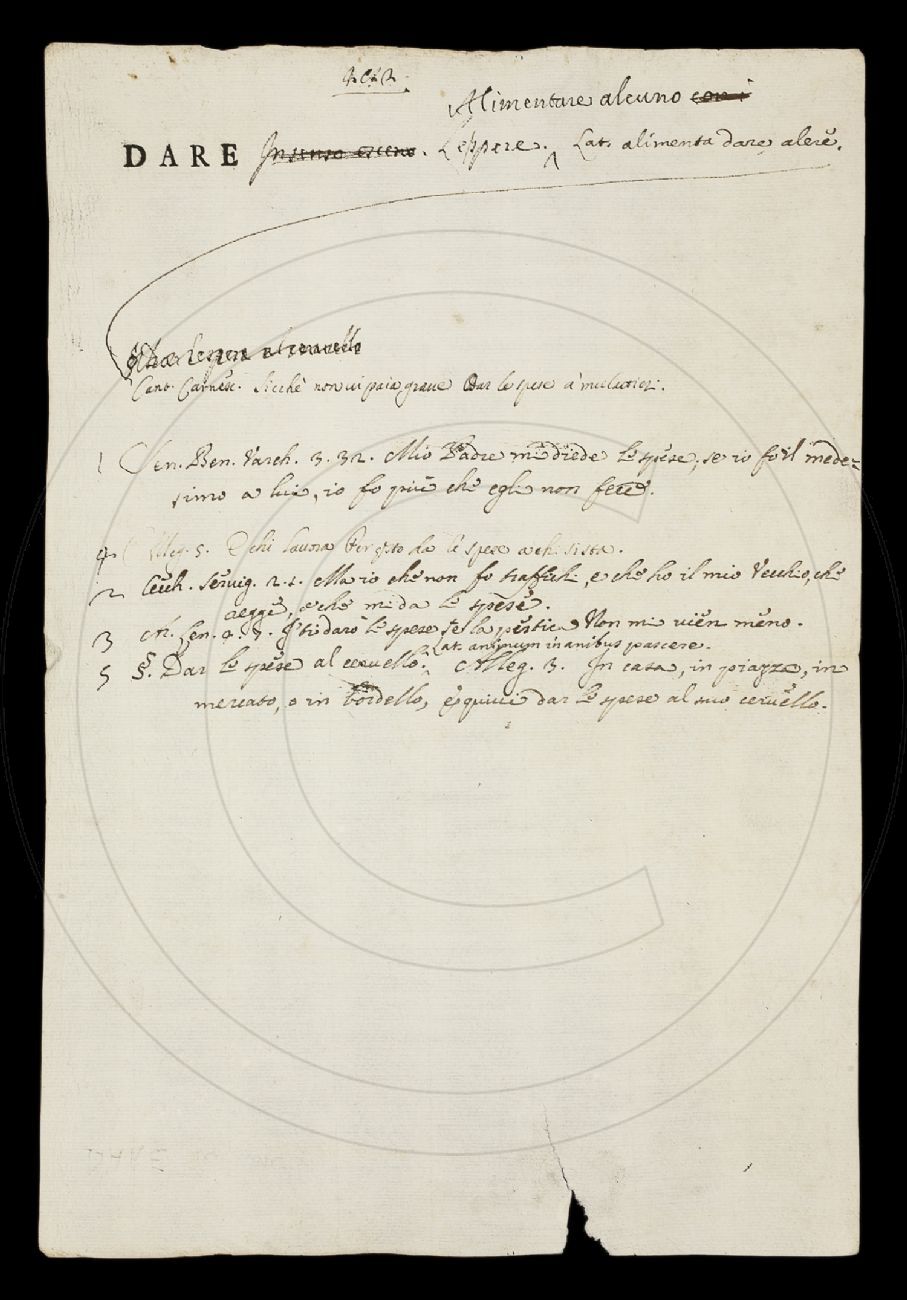 Alimentare alcuno
DARE Le spese. Lat. alimenta dare, alere.
Cant. Carnesc. Sicchè non vi paia grave Dar le spese a' mulattier.
1 Sen. Ben. Varch. 3. 32. Mio Padre mi diede le spese, se io fo il mede=
simo a lui, io fo più che egli non fece.
4 Alleg. 5. E chi lavora le spese a chi si sta.
2 Cecch. Servig. 2. 1. Ma io che non fo traffichi, e che ho il mio Vecchio, che
regge, e che mi da le spese.
3 ti darò le spese Non mi vien meno.
Lat. animum inanibus pascere.
5 §. Dar le spese al cervello. Alleg. 3. In casa, in piazza, in
mercato, o in bordello, è quivi dar le spese al suo cervello.